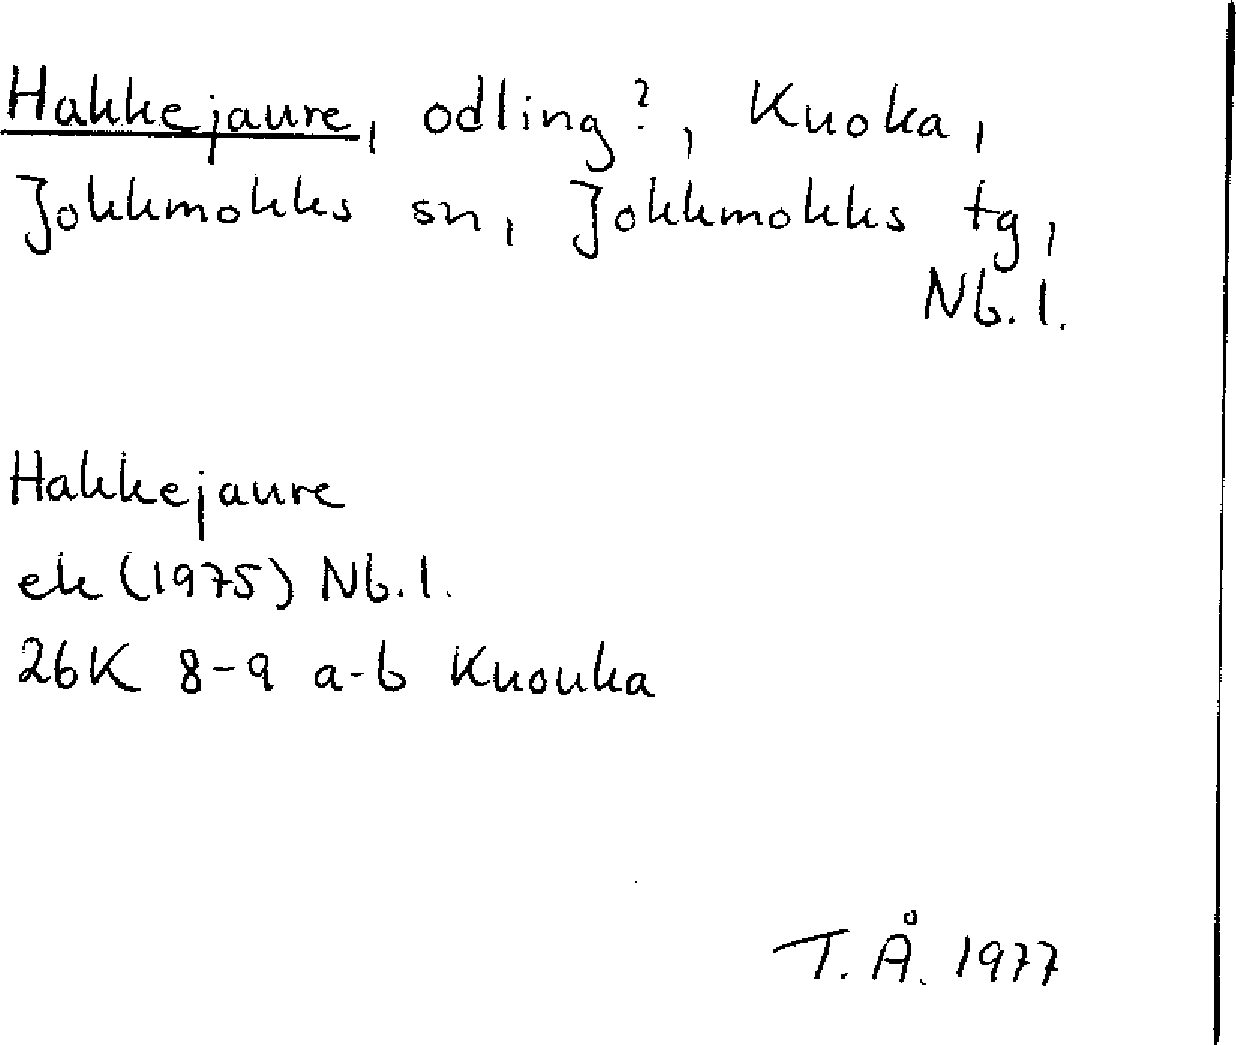 Hakkejaure, odling?, Kuoka,
Jokkmokks sn, Jokkmokks tg,
Nb. l.
Hakkejaure
ek (1975) Nb. l.
26K 8-9 a-b Knouka
T. Å. 1977